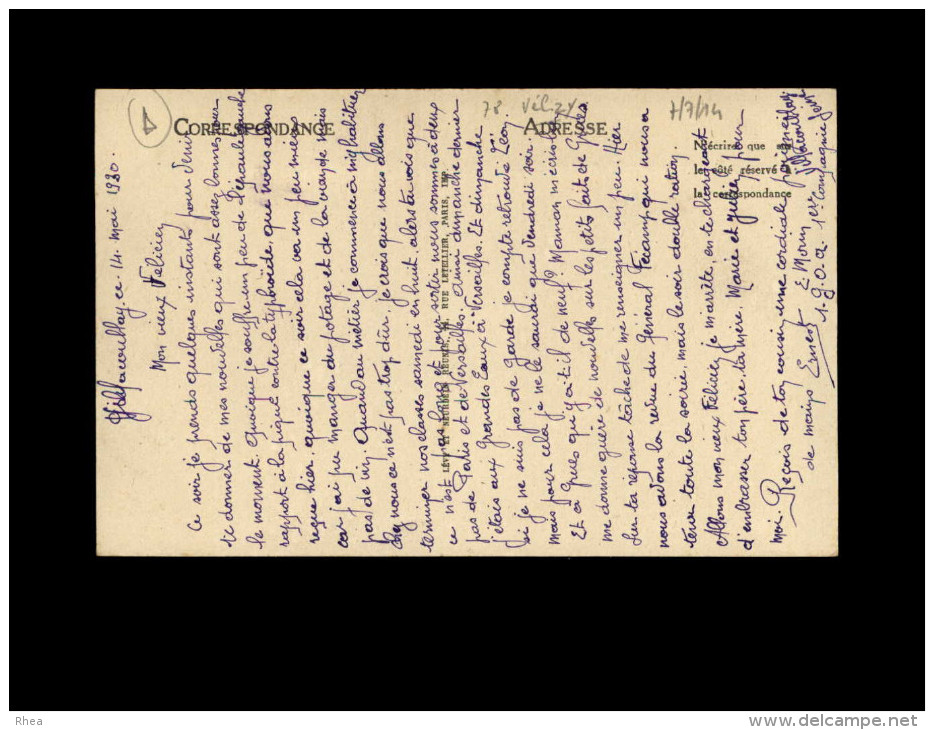 CORRESPONDANCE
ADRESSE
N'écrire que sur
le côté réservé à
la correspondance
LÉVY ET NEURDEIN RÉUNIS, 44, RUE LETELLIER, PARIS, IMP.
78 Vélizy
7/7/14
Villacoublay, ce 14 mai 1930
Mon vieux Félicien
Ce soir je prends quelques instants pour venir
te donner de mes nouvelles qui sont assez bonnes pour
le moment. Quoique je souffre un peu de l'épaule gauche
rapport à la piqûre contre la typhoïde, que nous avons
reçue hier, quoique ce soir cela va un peu mieux
car j'ai pu manger du potage et de la viande mais
pas de vin. Quand au métier je commence à m'y habituer
chez nous ce n'est pas trop dûr, je crois que nous allons
terminer nos classes samedi en huit, alors tu vois que
ce n'est pas long et pour sortir nous sommes à deux
pas de Paris et de Versailles. Ainsi dimanche dernier
j'étais aux "Grandes Eaux" à Versailles. Et dimanche
si je ne suis pas de garde je compte retrouvé Léo,
mais pour cela je ne le saurai que vendredi soir.
Et à Gques qu'y a-t-il de neuf? Maman m'écris
me donne guère de nouvelles sur les petits faits de Gques
sur ta réponse tâche de me renseigner un peu. Hier
nous avons la revue du Général Fécamp qui nous a
tenu toute la soirée, mais le soir double ration.
Allons mon vieux Félicien je m'arrête, en te chargeant
d'embrasser ton père, ta mère, Marie et pour
moi. Reçois de ton cousin une cordiale poignée
de mains Ernest
E Morin
1ère Compagnie